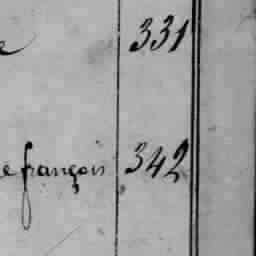 e 331
e françois 342